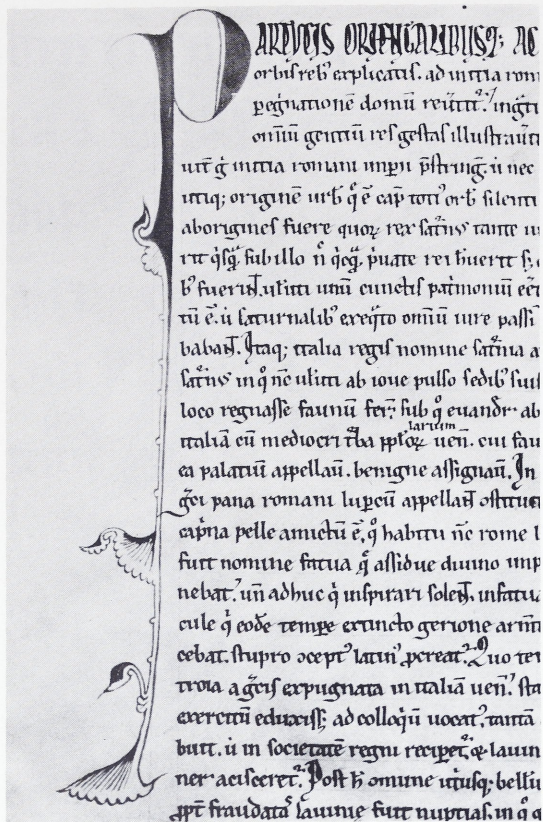 PARTHICIS ORIENTALIBUSQ; AC
orbis reb' explicatis. ad initia rom
pegͥnationē domū reūtit᷑. ingͣti
omīū gentiū res gestas illustraūit
uit̄ g̊ initia romani imꝑii p̄string̃. ū nec
utiq; originē urb̃ q̊ ē cap̃ toti' orb̃ silenti
aborigines fuere quoꝝ rex satͬn' tante iu
rit qͥsqͣ. sub illo n̄ qͥcqͣ. pͥuate rei h̃uerit s;
b' fuerit̃. uͥliti unū cunctis pat̃moniū eēt
tū ē. ū saturnalib' exeqͣto omīū iure passi
bat̃. Itaq; italia regis nomine satͬna a
satͬn' in q̊ nc̄ uͥliti ab ioue pulso sedib' suis
loco regnasse faunū fer̄t. sub q̊ euandr' ab
italiā cū mediocri tͬba pplariūoꝝ uen̄. cui fau
ea palatiū appellaū. benigne assignaū. In
gͬci pana romani luꝑcū appellat̃ ɔstitu
capͥna pelle amictū ē, q̊ habitu nc̄ rome l
fuit nomine fatua q̄ assidue diuino imp
nebat᷑. un̄ adhuc qͥ inspirari solet̃. infatu
cule qͥ eodē tempe extincto gerione arm̄t
cebat. stupro ɔcept' latin' ꝓcreat᷑. Quo ten
troia a gͬcis expugnata in italiā uen̄. sta
exercitū eduxiss; ad colloqͥū uocat'. tantā
buit. ū in societatē regni reciꝑet᷑. & lauin
ner ascisceret᷑. Post h̄ comune utͥusq; bellū
ꝓpt̃ fraudatas lauinie fuit nuptias. in q̊ q